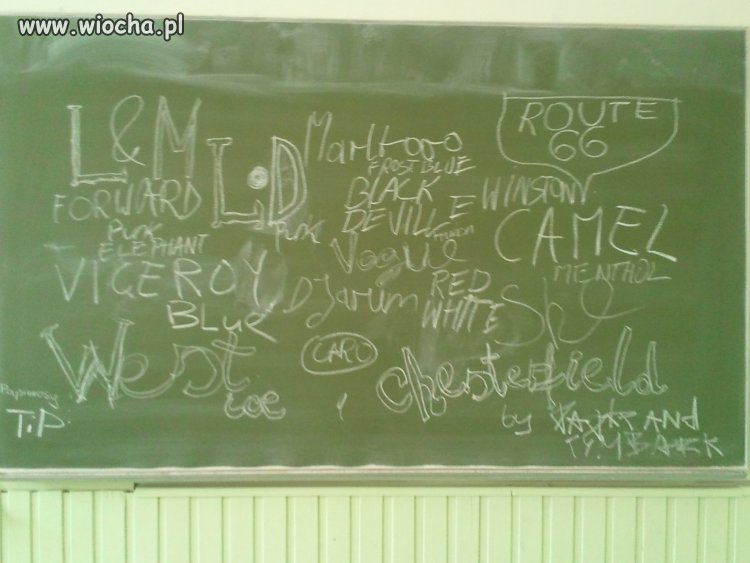 www.wiocha.pl
L&M
FORWARD
L.D
PINK
Marlboro
FROST BLUE
ROUTE
66
BLACK
DEVILLE
WINSTON
PINK
ELEPHANT
CAMEL
MENTHOL
Vogue
VICEROY
BLUE
Djarum
RED
WHITE
West
ice
CARO
chesterfield
Papierosy
T.P.
by AND